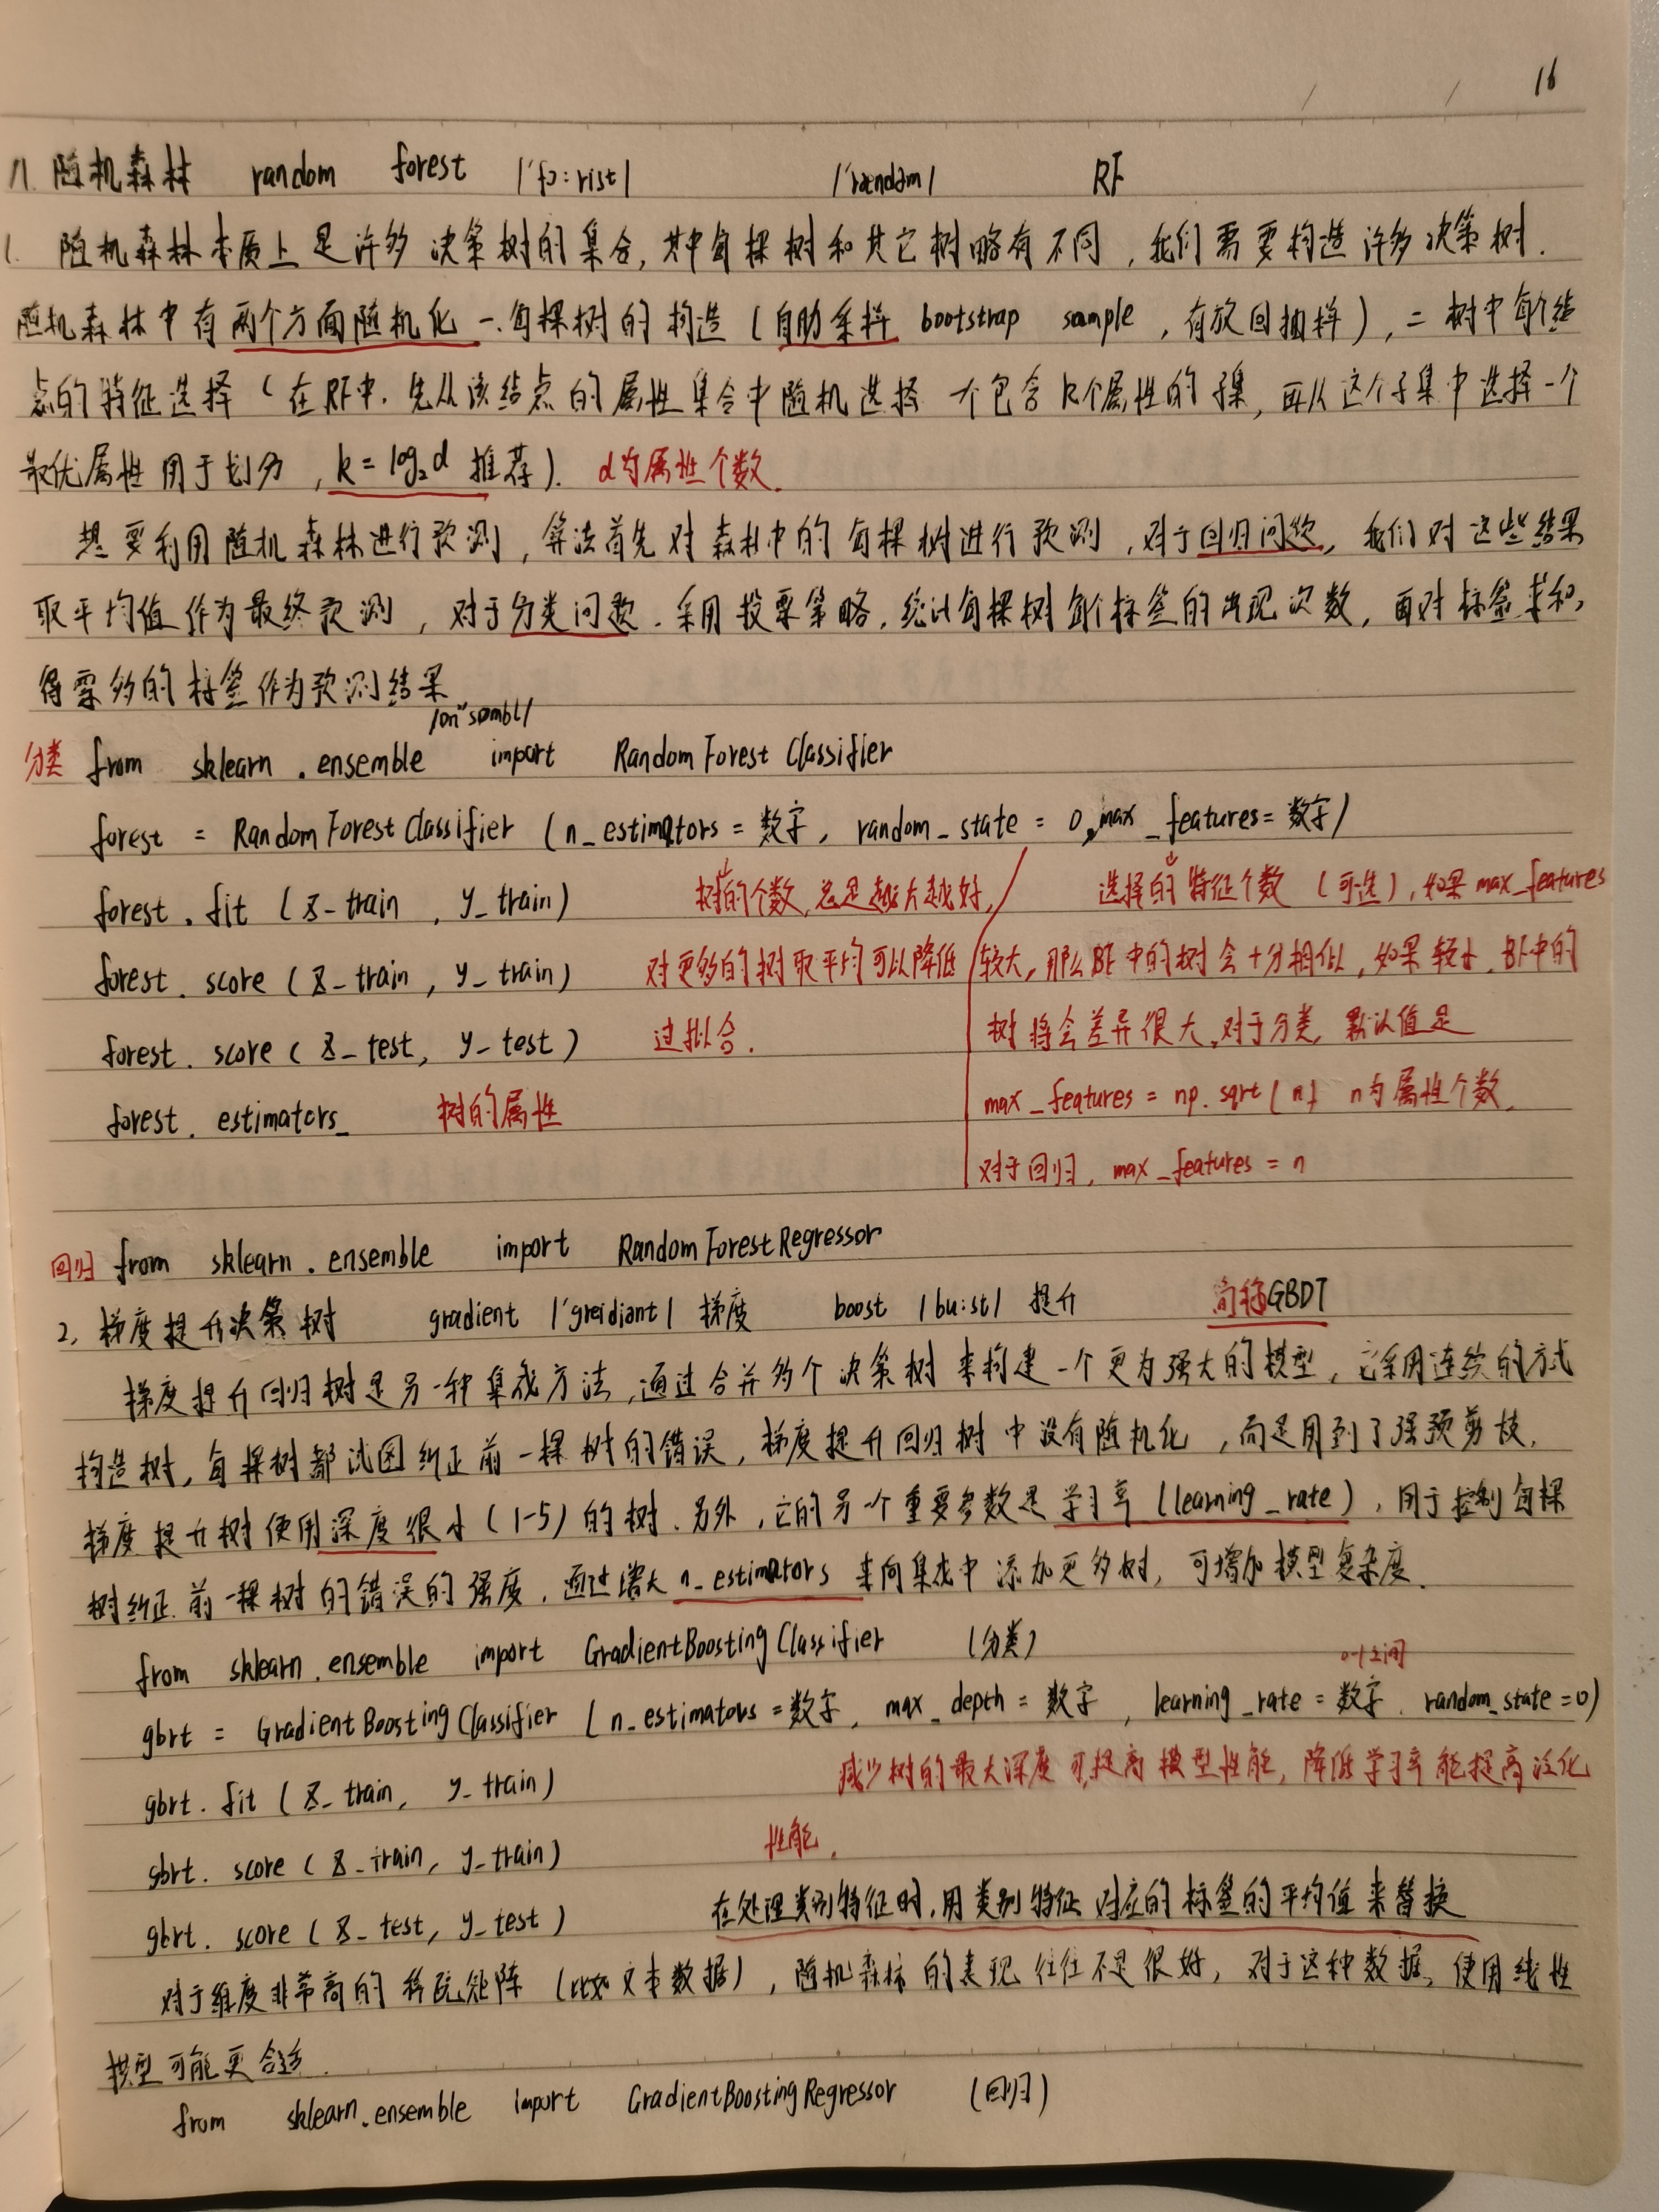 16
八. 随机森林 random forest |'fɔ:rist| |'rændəm| RF
1. 随机森林本质上是许多决策树的集合, 其中每棵树和其它树略有不同, 我们需要构造许多决策树.
随机森林中有两个方面随机化 一.每棵树的构造 (自助采样 bootstrap sample, 有放回抽样), 二 树中每个结
点的特征选择 (在RF中, 先从该结点的属性集合中随机选择一个包含k个属性的子集, 再从这个子集中选择一个
最优属性用于划分, k = log₂d 推荐). d为属性个数.
想要利用随机森林进行预测, 算法首先对森林中的每棵树进行预测, 对于回归问题, 我们对这些结果
取平均值作为最终预测, 对于分类问题. 采用投票策略, 统计每棵树每个标签的出现次数, 再对标签求和,
得票多的标签作为预测结果
|on"sombl|
分类 from sklearn.ensemble import RandomForestClassifier
forest = RandomForestClassifier (n_estimators = 数字, random_state = 0, max_features = 数字)
forest.fit (X_train, y_train) 树的个数, 总是越大越好, 选择的特征个数 (可选), 如果max_features
forest.score (X_train, y_train) 对更多的树取平均可以降低 较大, 那么RF中的树会十分相似, 如果较小, RF中的
forest.score (X_test, y_test) 过拟合. 树将会差异很大, 对于分类, 默认值是
forest.estimators_ 树的属性 max_features = np.sqrt(n) n为属性个数.
对于回归, max_features = n
回归 from sklearn.ensemble import RandomForestRegressor
2. 梯度提升决策树 gradient |'greidiənt| 梯度 boost |bu:st| 提升 简称GBDT
梯度提升回归树是另一种集成方法, 通过合并多个决策树来构建一个更为强大的模型, 它采用连续的方式
构造树, 每棵树都试图纠正前一棵树的错误, 梯度提升回归树中没有随机化, 而是用到了强预剪枝.
梯度提升树使用深度很小 (1-5) 的树. 另外, 它的另一个重要参数是学习率 (learning_rate), 用于控制每棵
树纠正前一棵树的错误的强度, 通过增大n_estimators 来向集成中添加更多树, 可增加模型复杂度.
from sklearn.ensemble import GradientBoostingClassifier (分类)
0-1之间
gbrt = GradientBoostingClassifier (n_estimators = 数字, max_depth = 数字, learning_rate = 数字, random_state = 0)
gbrt.fit (X_train, y_train) 减少树的最大深度可提高模型性能, 降低学习率能提高泛化
gbrt.score (X_train, y_train) 性能.
gbrt.score (X_test, y_test) 在处理类别特征时, 用类别特征对应的标签的平均值来替换
对于维度非常高的稀疏矩阵 (比如文本数据), 随机森林的表现往往不是很好, 对于这种数据, 使用线性
模型可能更合适.
from sklearn.ensemble import GradientBoostingRegressor (回归)